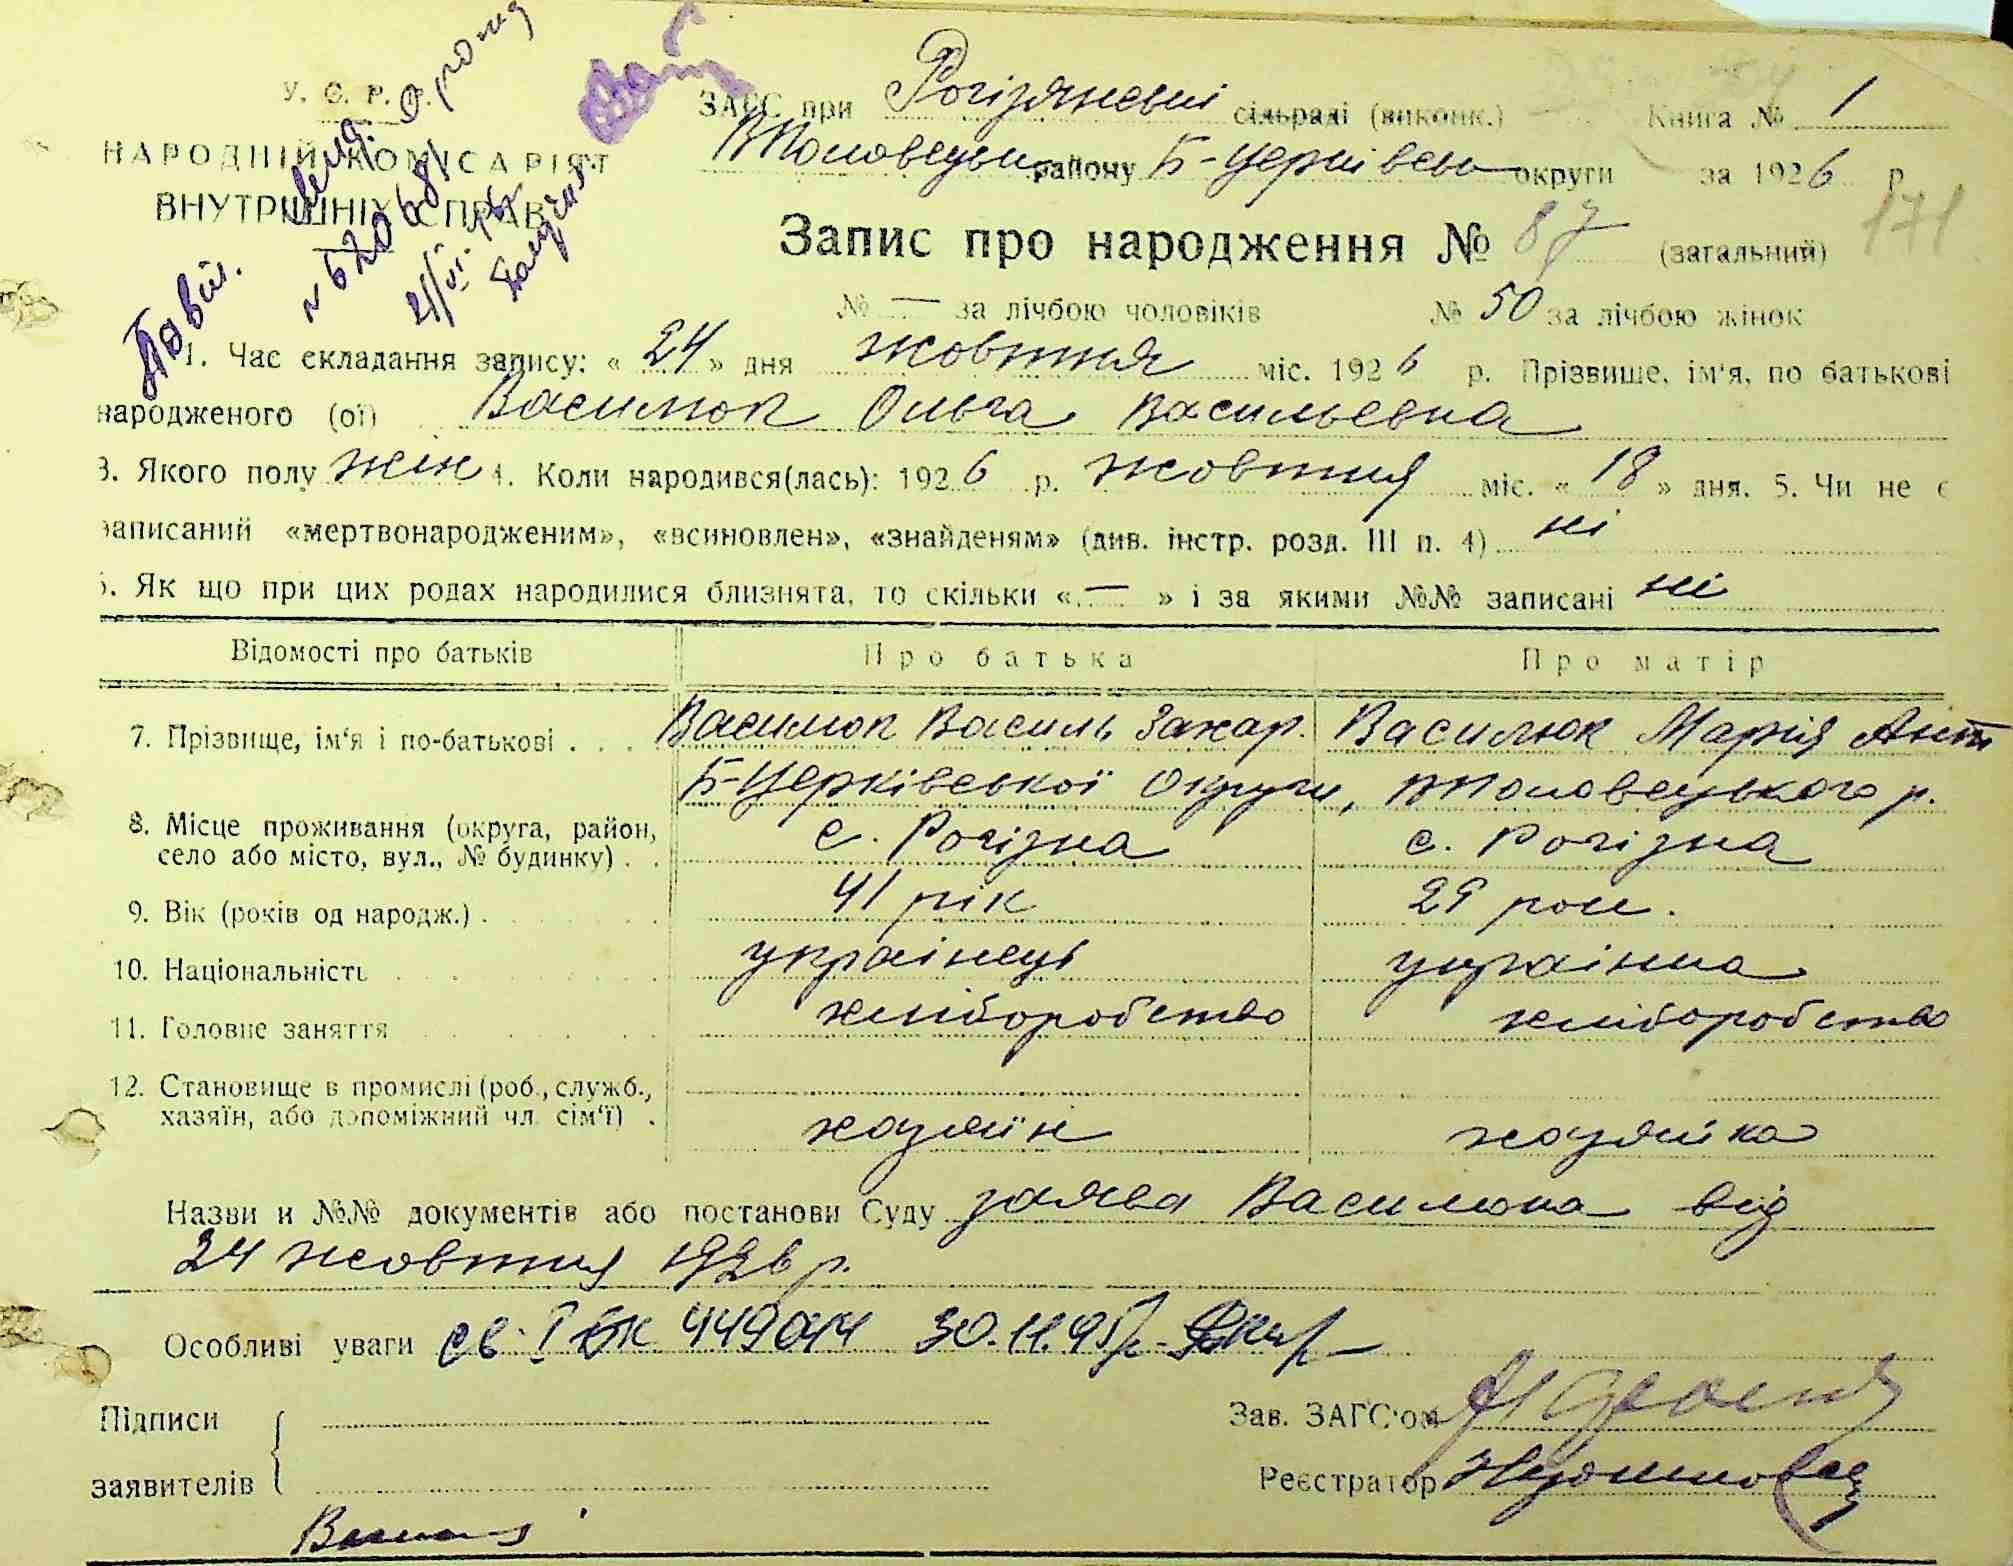 У. С. Р. Р.
НАРОДНІЙ КОМІСАРІЯТ
ВНУТРІШНІХ СПРАВ
ЗАГС при Рогізянській сільраді (виконк.) Книга № 1
району Б-Церківської округи за 1926 р
171
Запис про народження № 87 (загальний)
№ — за лічбою чоловіків № 50 за лічбою жінок
1. Час складання запису: « 24 » дня жовтня міс. 1926 р. Прізвище, ім'я, по батькові
народженого (ої) Василюк Ольга Васильевна
3. Якого полу жін 4. Коли народився(лась): 1926 р. жовтня міс. « 18 » дня. 5. Чи не є
записаний «мертвонародженим», «всиновлен», «знайденям» (див. інстр. розд. III п. 4) ні
6. Як що при цих родах народилися близнята, то скільки « — » і за якими №№ записані ні
Відомості про батьків Про батька Про матір
7. Прізвище, ім'я і по-батькові . . . Василюк Василь Захар. Василюк Марія Ант
Б-Церківської Округи, р.
8. Місце проживання (округа, район,
село або місто, вул., № будинку) . . с. Рогізна с. Рогізна
9. Вік (років од народж.) . 41 рік 29 рок.
10. Національність українець українка
11. Головне заняття хліборобство хліборобство
12. Становище в промислі (роб., служб.,
хазяїн, або допоміжний чл. сім'ї) . хазяїн хазяйка
Назви и №№ документів або постанови Суду заява Василюка від
24 жовтня 1926 р.
Особливі уваги св. І БК 449044 30.11.45 р.
Підписи Зав. ЗАГС'ом
заявителів Реєстратор